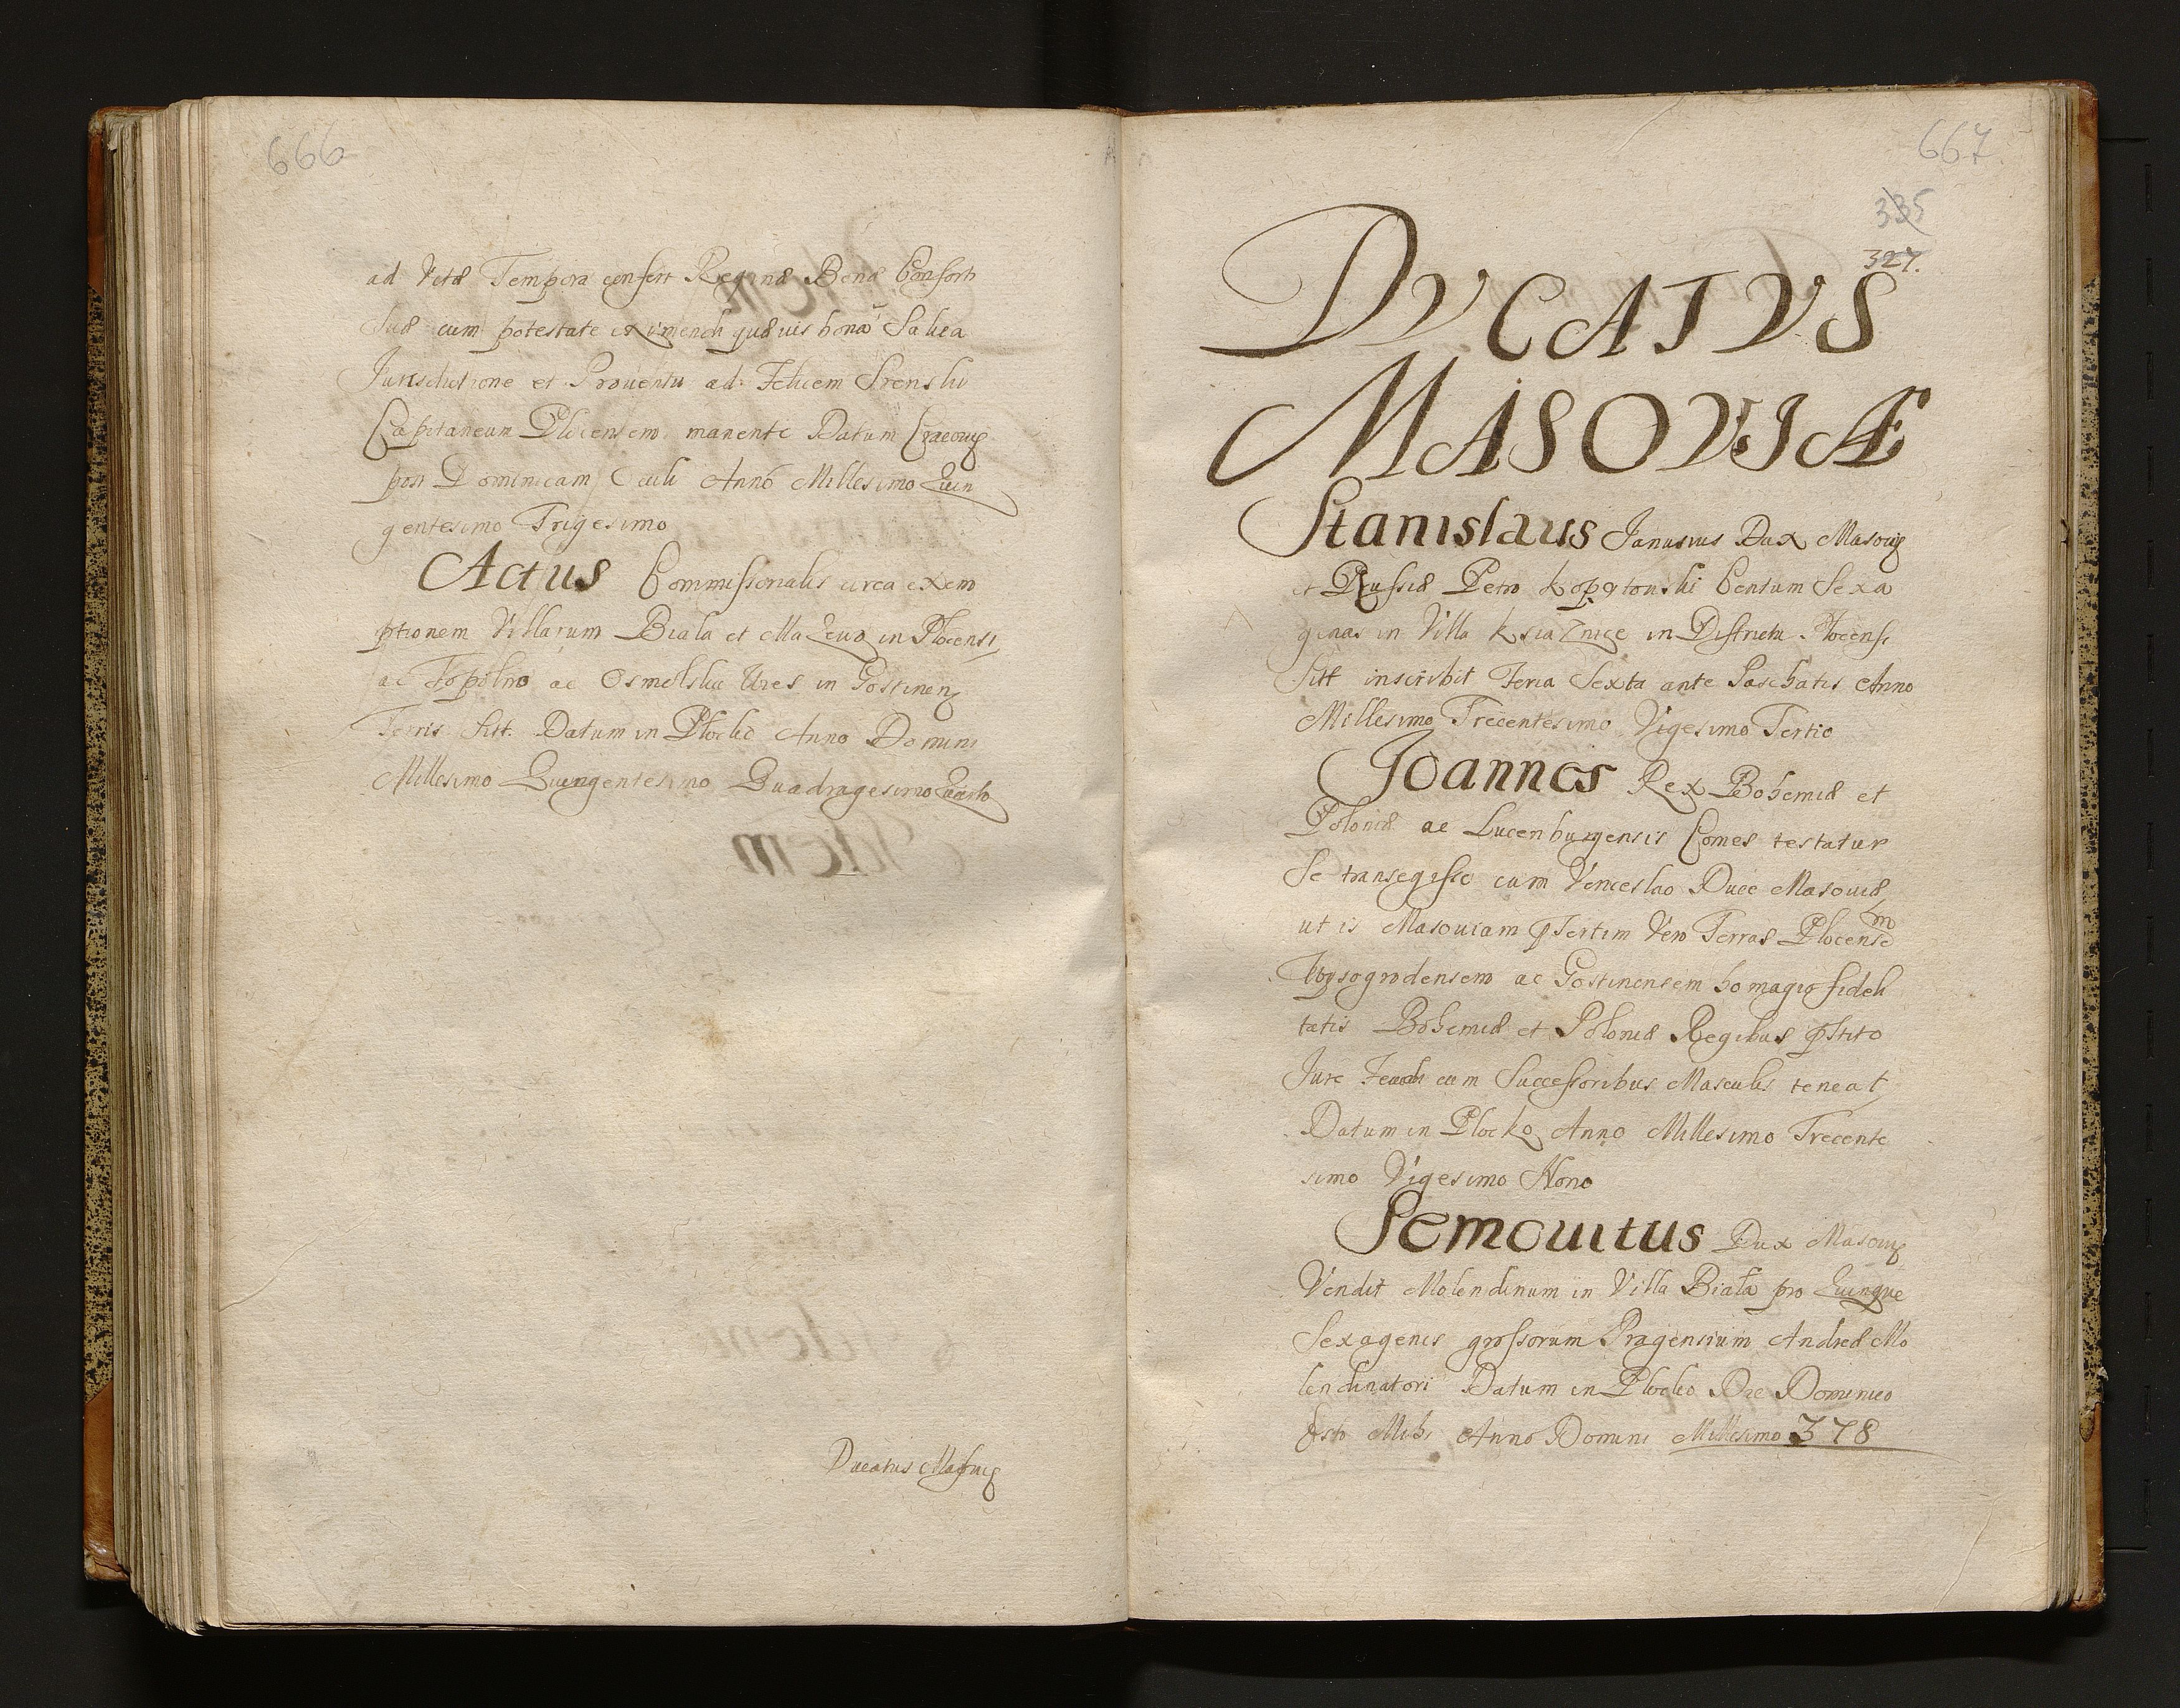 666
ad Vitæ Tempora confert Reginæ Bonæ Consorti
Suæ cum potestate eximendi quæuis bona Salua
Jurisdictione et Prouentu ad Felicem Srenski
Capitaneum Plocensem manente Datum Cracouiæ
post Dominicam Oculi Anno Millesimo Quin
gentesimo Trigesimo
Actus Commissorialis circa exem
ptionem Villarum Biala et Mazewo in Plocensi
ac Topolno ac Osmolskie Ures in Gostinen
Terris sitt. Datum in Plocko Anno Domini
Millesimo Quingentesimo Quadragesimo Quarto
Ducatus Masouiæ
667
335
327.
DVCATVS
MASOVIÆ
Stanislaus Janusius Dux Masouiæ
et Russiæ Petro Kopytouski Centum Sexa
genas in Villa Ksiaznice in Districtu Plocensi
sitt inscribit Feria Sexta ante Paschatis Anno
Millesimo Trecentesimo Vigesimo Tertio
Joannes Rex Bohemiæ et
Poloniæ ac Lucenburgensis Comes testatur
Se transegisse cum Venceslao Duce Masouiæ
ut is Masouiam pSertim Vero Terras Plocensem
Wysogrodensem ac Gostinensem homagio fideli
tatis Bohemiæ et Poloniæ Regibus pstito
Jure Feudi cum Successoribus Masculis teneat
Datum in Plocko Anno Millesimo Trecente
simo Vigesimo Nono
Semouitus Dux Masouiæ
Vendit Molendinum in Villa Biała pro Quinque
Sexagenis grossorum Pragensium Andreæ Mo
lendinatori Datum in Plocko Die Dominico
Esto Mihi Anno Domini Millesimo 378